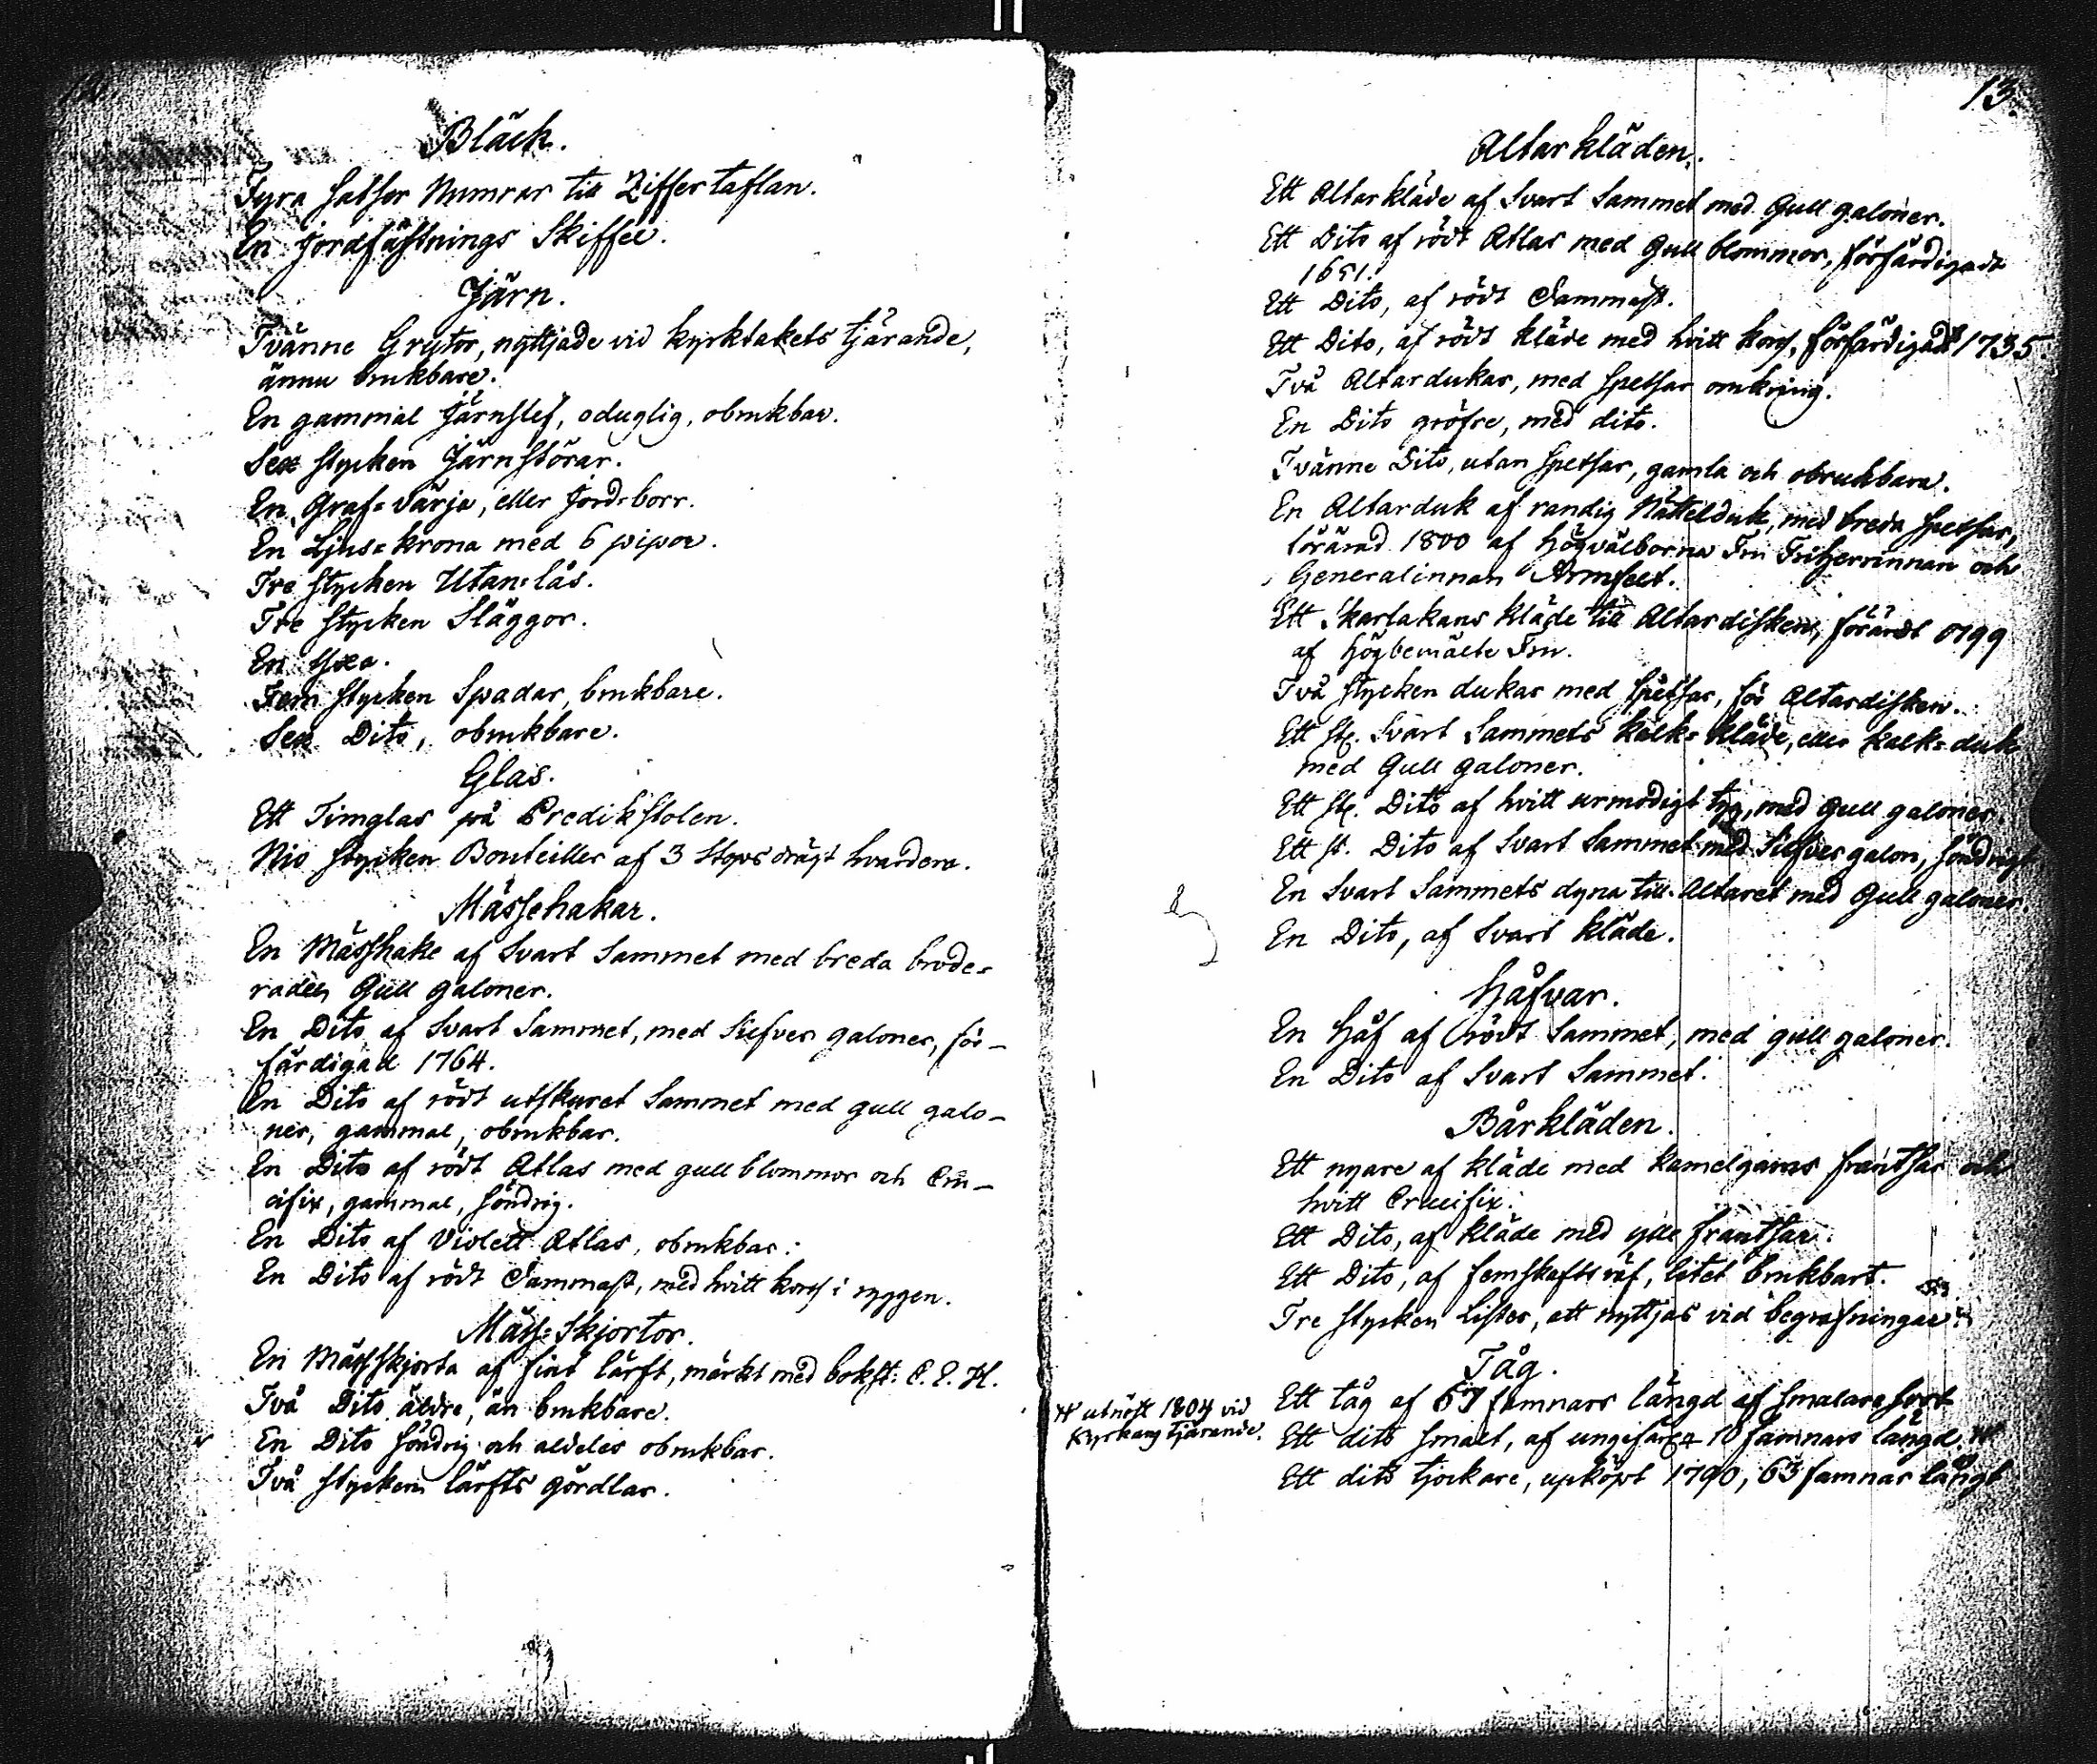 Bläck.
Fyra satser Numrar till Ziffertaflan.
En Jordfästnings Skiffel.
Järn.
Tvänne Grytor, nyttjade vid kyrktakets tjärande,
ännu brukbare.
En gammal Järnslef, oduglig, obrukbar.
Sex stycken Järnstörar.
En Graf=värja, eller Jord=borr.
En Ljus=krona med 6 pipor.
Tre stycken Utan=lås.
Tre stycken Släggor.
En Yxa.
Fem stycken Spadar, brukbare.
Sex Dito, obrukbare.
Glas.
Ett Timglas på Predikstolen.
Nio stycken Bouteiller af 3 Stops drägt hvardera.
Mässehakar.
En Mässhake af Svart Sammet med breda brode=
rade Gull galoner.
En Dito af Svart Sammet, med Silfver galoner, för-
färdigad 1764.
En Dito af rödt utskuret Sammet med gull galo-
ner, gammal, obrukbar.
En Dito af rödt Atlas med gull blommor och Cru-
cifix, gammal, söndrig.
En Dito af Violett Atlas, obrukbar.
En Dito af rödt Dammast, med hvitt kors i ryggen.
Mäss=Skjortor.
En Mässskjorta af fint lärft, märkt med bokst: C. E. H.
Två Dito äldre, än brukbare.
En Dito söndrig och aldeles obrukbar.
Två stycken lärfts gördlar.
13.
Altarkläden.
Ett Altarkläde af Svart Sammet med Gull galoner.
Ett Dito af rödt Atlas med Gull blommor, förfärdigadt
1651.
Ett Dito, af rödt Dammast.
Ett Dito, af rödt kläde med hvitt kors, förfärdigadt 1735
Två Altardukar, med spetsar omkring.
En Dito gröfre, med dito.
Tvänne Dito, utan spetsar, gamla och obrukbara.
En Altarduk af randig Nättelduk, med breda spetsar,
förärad 1800 af Högvälborna Fru Friherrinnan och
Generalinnan Armfelt.
Ett Skarlakans kläde till Altardisken, förärdt 1799
af Högbemälte Fru.
Två stycken dukar med spetsar, för Altardisken.
Ett st. Svart Sammets kalk=kläde, eller kalk=duk
med Gull galoner.
Ett st. Dito af hvitt urmodigt tyg, med Gull galoner
Ett st. Dito af Svart Sammet med Silfver galon, söndrigt
En Svart Sammets dyna till Altaret med Gull galoner.
En Dito, af Svart kläde.
Håfvar.
En Håf af rödt Sammet, med gull galoner.
En Dito af Svart Sammet.
Bårkläden.
Ett nyare af kläde med kamelgarns frantsar och
hvitt Crucifix.
Ett Dito, af kläde med ylle frantsar.
Ett Dito, af femskafts väf, litet brukbart.
Tre stycken Lister, att nyttjas vid begrafningar.
Tåg.
Ett tåg af 67 famnars längd af smalare sort
Ett dito smalt, af ungefär 10 famnars längd. #
# utnött 1804 vid
Kyrkans tjärande.
Ett dito tjockare, upköpt 1790, 63 famnar långt